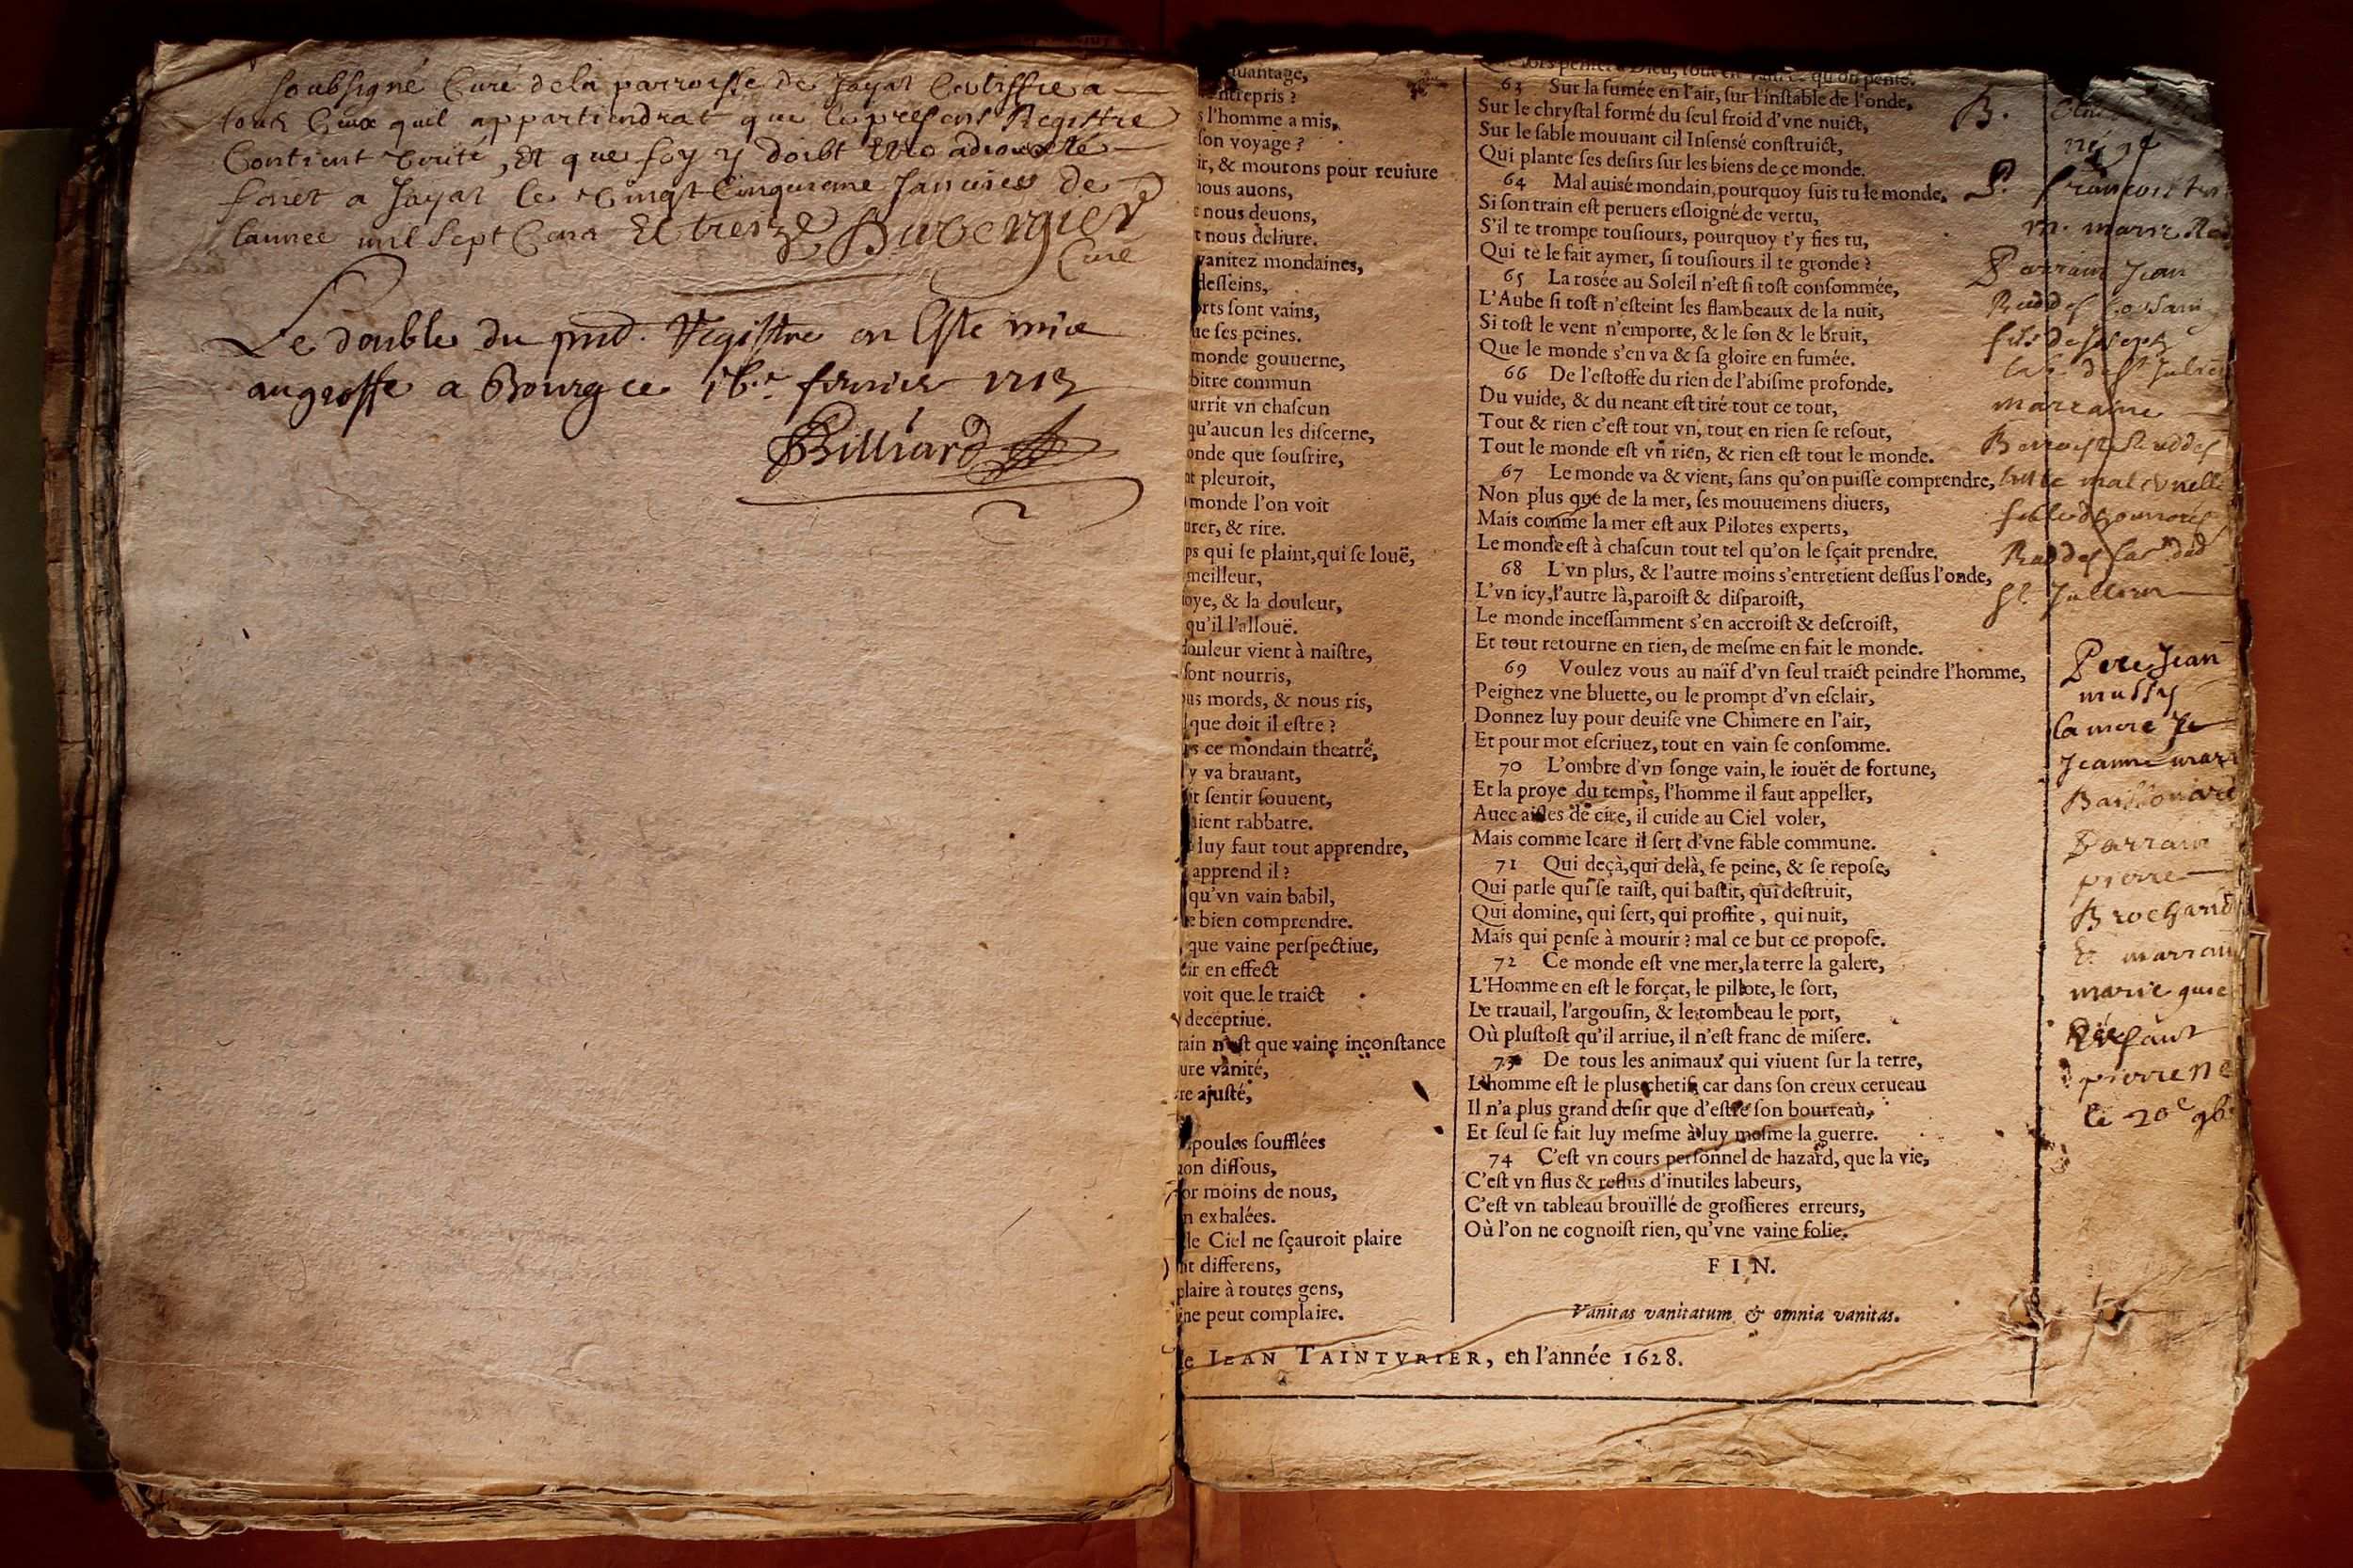 soubsigné Curé de la parroisse de Jayat Certiffie a
tous Ceux quil appartiendrat que le present Registre
Contient verité, Et que foy y doibt
a Jayat le vingt Cinquieme de
lannee mil sept Cens Et treize
Curé
Le double du Registre en Este mis
au greffe a Bourg ce fevrier 1713
Billiard
uantage,
ntrepris ?
s l'homme a mis,
son voyage ?
ir, & mourons pour reuiure
nous auons,
t nous deuons,
t nous deliure.
vanitez mondaines,
desseins,
orts sont vains,
ue ses peines.
monde gouuerne,
bitre commun
urrit vn chaſcun
qu'aucun les diſcerne,
onde que souſrire,
nt pleuroit,
monde l'on voit
urer, & rire.
ps qui ſe plaint, qui ſe louë,
meilleur,
oye, & la douleur,
qu'il l'allouë.
douleur vient à naiſtre,
ſont nourris,
ous mords, & nous ris,
que doit il eſtre ?
s ce mondain theatre,
y va brauant,
it ſentir ſouuent,
aient rabbatre.
luy faut tout apprendre,
apprend il ?
qu'vn vain babil,
e bien comprendre.
que vaine perſpectiue,
ir en effect
voit que le traict
deceptiue.
rain n'eſt que vaine inconſtance
ure vanité,
re ajuſté,
poules ſoufflées
on diſſous,
or moins de nous,
n exhalées.
le Ciel ne ſçauroit plaire
nt differens,
plaire à toutes gens,
ne peut complaire.
63 Sur la fumée en l'air, ſur l'inſtable de l'onde,
Sur le chryſtal formé du ſeul froid d'vne nuict,
Sur le ſable mouuant cil Inſensé conſtruict,
Qui plante ſes deſirs ſur les biens de ce monde.
64 Mal auiſé mondain, pourquoy ſuis tu le monde,
Si ſon train eſt peruers eſloigné de vertu,
S'il te trompe touſiours, pourquoy t'y fies tu,
Qui te le fait aymer, ſi touſiours il te gronde ?
65 La rosée au Soleil n'eſt ſi toſt conſommée,
L'Aube ſi toſt n'eſteint ſes flambeaux de la nuit,
Si toſt le vent n'emporte, & le ſon & le bruit,
Que le monde s'en va & ſa gloire en fumée.
66 De l'eſtoffe du rien de l'abiſme profonde,
Du vuide, & du neant eſt tiré tout ce tout,
Tout & rien c'eſt tout vn, tout en rien ſe reſout,
Tout le monde eſt vn rien, & rien eſt tout le monde.
67 Le monde va & vient, ſans qu'on puiſſe comprendre,
Non plus que de la mer, ſes mouuemens diuers,
Mais comme la mer eſt aux Pilotes experts,
Le monde eſt à chaſcun tout tel qu'on le ſçait prendre.
68 L'vn plus, & l'autre moins s'entretient deſſus l'onde,
L'vn icy, l'autre là, paroiſt & diſparoiſt,
Le monde inceſſamment s'en accroiſt & deſcroiſt,
Et tout retourne en rien, de meſme en fait le monde.
69 Voulez vous au naïf d'vn ſeul traict peindre l'homme,
Peignez vne bluette, ou le prompt d'vn eſclair,
Donnez luy pour deuiſe vne Chimere en l'air,
Et pour mot eſcriuez, tout en vain ſe conſomme.
70 L'ombre d'vn ſonge vain, le iouët de fortune,
Et la proye du temps, l'homme il faut appeller,
Auec aiſles de cire, il cuide au Ciel voler,
Mais comme Icare il ſert d'vne fable commune.
71 Qui deçà, qui delà, ſe peine, & ſe repoſe,
Qui parle qui ſe taiſt, qui baſtit, qui deſtruit,
Qui domine, qui ſert, qui proffite, qui nuit,
Mais qui penſe à mourir ? mal ce but ce propoſe.
72 Ce monde eſt vne mer, la terre la galere,
L'Homme en eſt le forçat, le pillote, le ſort,
Le trauail, l'argouſin, & le tombeau le port,
Où pluſtoſt qu'il arriue, il n'eſt franc de miſere.
73 De tous les animaux qui viuent ſur la terre,
L'homme eſt le plus chetif, car dans ſon creux cerueau
Il n'a plus grand deſir que d'eſtre ſon bourreau,
Et ſeul ſe fait luy meſme à luy meſme la guerre.
74 C'eſt vn cours perſonnel de hazard, que la vie,
C'eſt vn flus & reflus d'inutiles labeurs,
C'eſt vn tableau brouïllé de groſſieres erreurs,
Où l'on ne cognoiſt rien, qu'vne vaine folie.
FIN.
Vanitas vanitatum & omnia vanitas.
e IEAN TAINTVRIER, en l'année 1628.
B.
né
P. francois
m. marie
Parrain Jean
fils de Joseph
marraine
Pere Jean
la mere
Jeanne
Parrain
pierre
Brochard
marie
pierre
le 20e